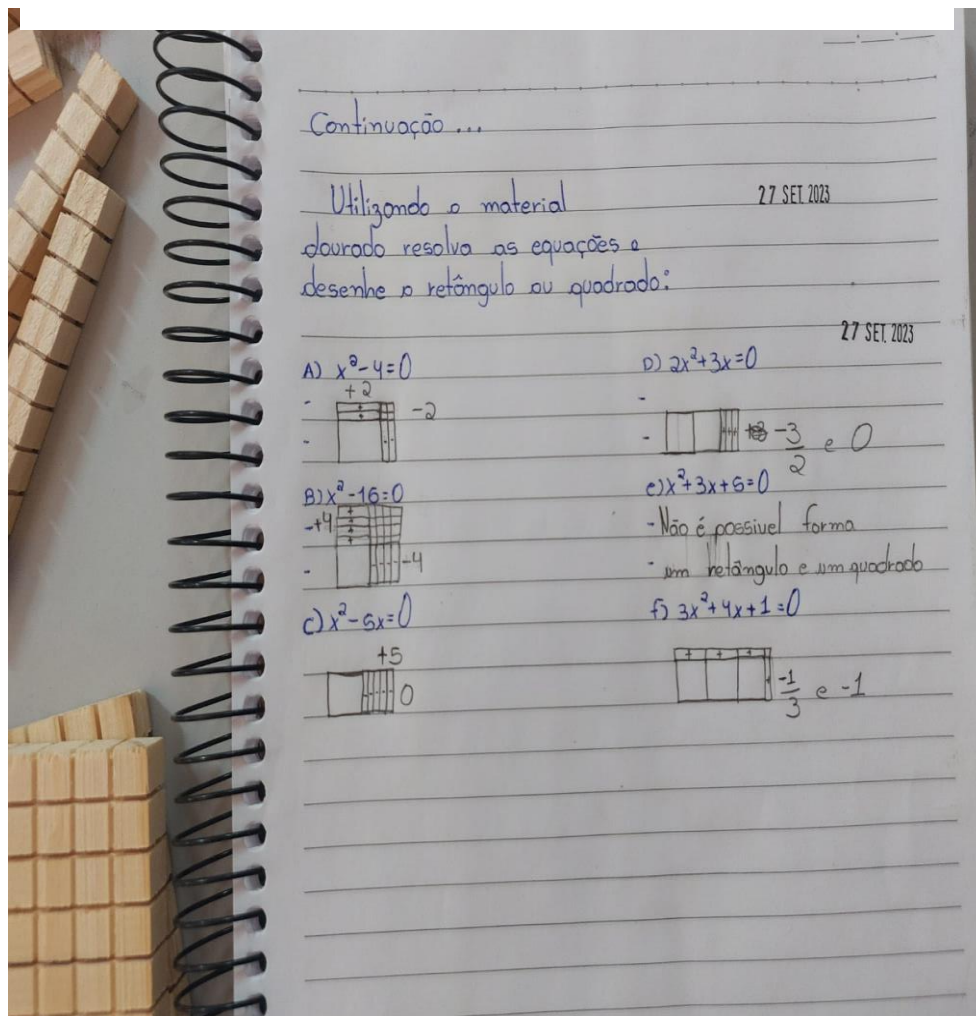 Continuação...
Utilizando o material
27 SET. 2023
dourado resolva as equações e
desenhe o retângulo ou quadrado:
27 SET. 2023
A) x²-4=0
+2
-2
B) x²-16=0
+4
-4
c) x²-5x=0
+5
0
D) 2x²+3x=0
-3/2 e 0
e) x²+3x+5=0
- Não é possivel forma
- um retângulo e um quadrado
f) 3x²+4x+1=0
-1/3 e -1